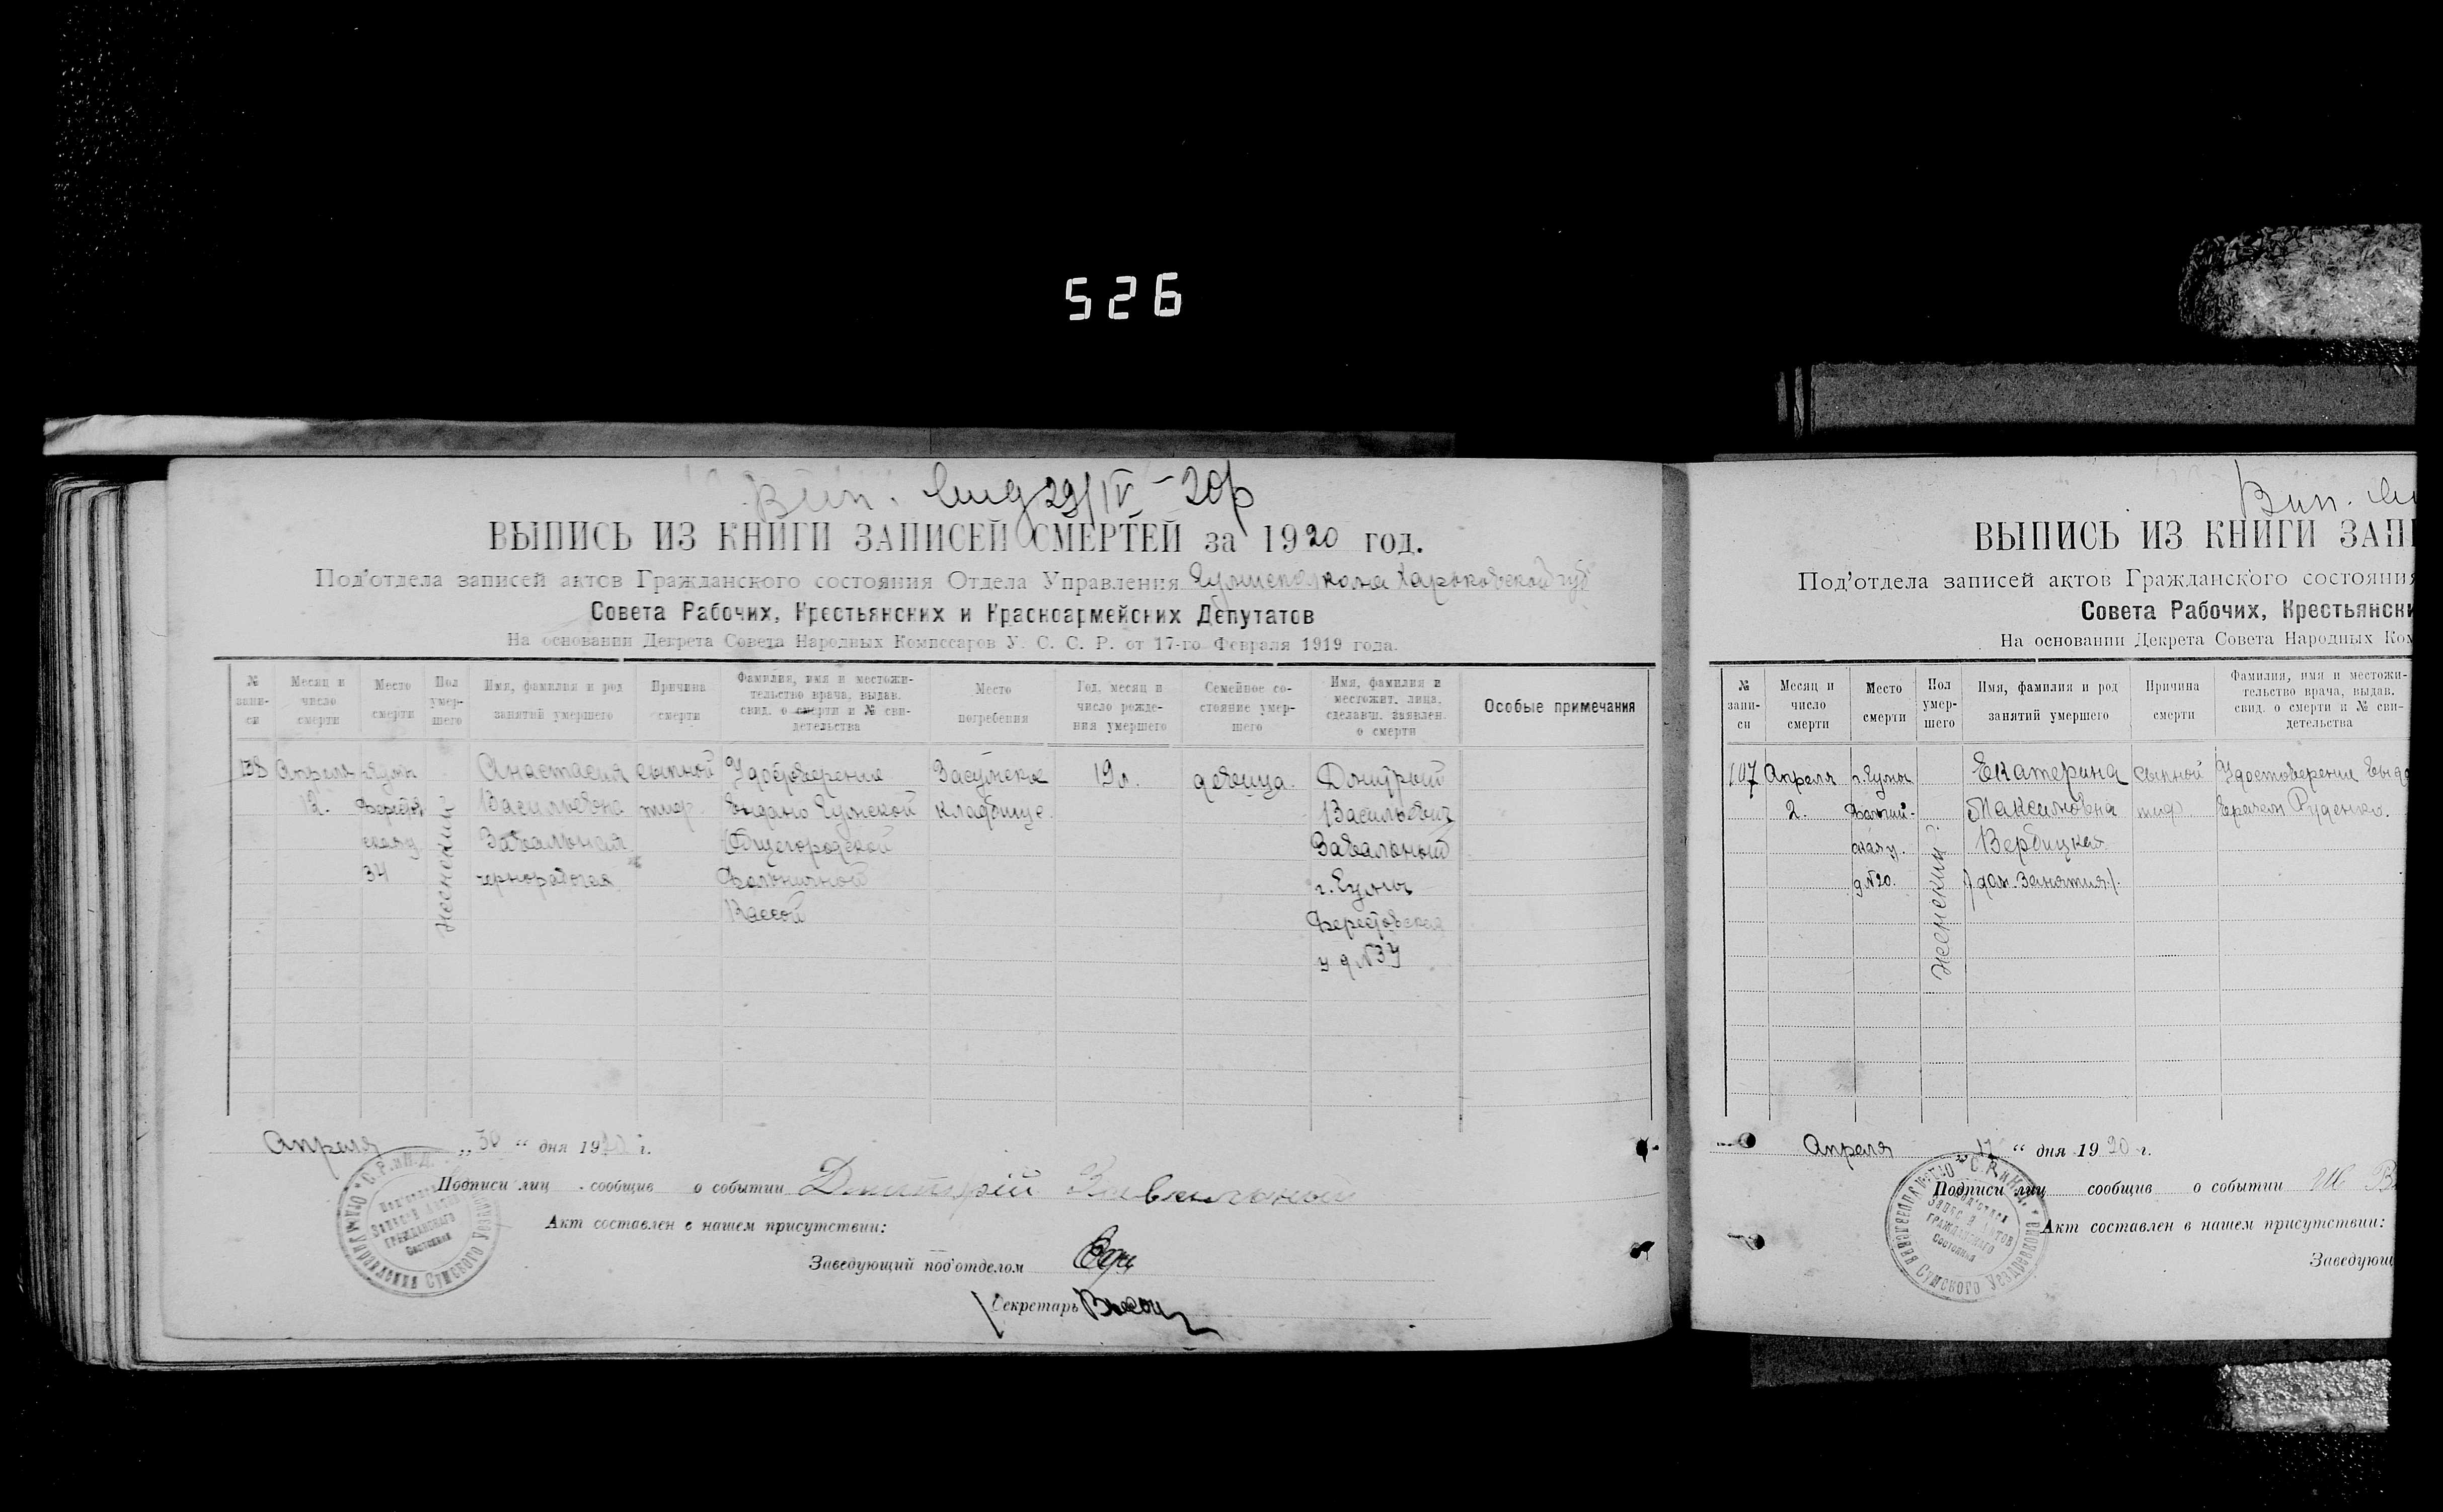 526
Вип. 29/IV-20р
ВЫПИСЬ ИЗ КНИГИ ЗАПИСЕЙ СМЕРТЕЙ за 1920 год.
Под'отдела записей актов Гражданского состояния Отдела Управления Сумисполкома Харьковской губ
Совета Рабочих, Крестьянских и Красноармейских Депутатов
На основании Декрета Совета Народных Комиссаров У. С. С. Р. от 17-го Февраля 1919 года.
№ запи-си
Месяц и число смерти
Место смерти
Пол умер-шего
Имя, фамилия и род занятий умершего
Причина смерти
Фамилия, имя и местожи-тельство врача, выдав. свид. о смерти и № сви-детельства
Место погребения
Год, месяц и число рожде-ния умершего
Семейное со-стояние умер-шего
Имя, фамилия и местожит. лица, сделавш. заявлен. о смерти
Особые примечания
138 Апреля г. Сумы Анастасия сыпной Удостоверение Засумское 19 л. девица. Дмитрий
12. Берестов Васильевна тиф. выдано Сумской кладбище. Васильевич
ская у. Завальная Общегородской Завальный
34 чернорабочая Больничной г. Сумы
женский Кассой Берестовская
у д №34
Апреля „30“ дня 1920 г.
Подписи лиц сообщив о событии Дмитрій Завальный
Акт составлен в нашем присутствии:
Заведующий под'отделом
Секретарь
Под'отдел Записей Актов Гражданского Состояния
Сумского
Вип.
ВЫПИСЬ ИЗ КНИГИ ЗАПИ
Под'отдела записей актов Гражданского состояния
Совета Рабочих, Крестьянски
На основании Декрета Совета Народных Ком
№ запи-си
Месяц и число смерти
Место смерти
Пол умер-шего
Имя, фамилия и род занятий умершего
Причина смерти
Фамилия, имя и местожи-тельство врача, выдав. свид. о смерти и № сви-детельства
107 Апреля г. Сумы Екатерина сыпной Удостоверение выда
2. Максимовна тиф. врачем Руденко.
ная у. Вербицкая
д №20. /дом. занятия/.
женский
Апреля 17“ дня 1920 г.
Подписи лиц сообщив о событии
Акт составлен в нашем присутствии:
Заведующ
Под'отдел Записей Актов Гражданского Состояния
Сумского